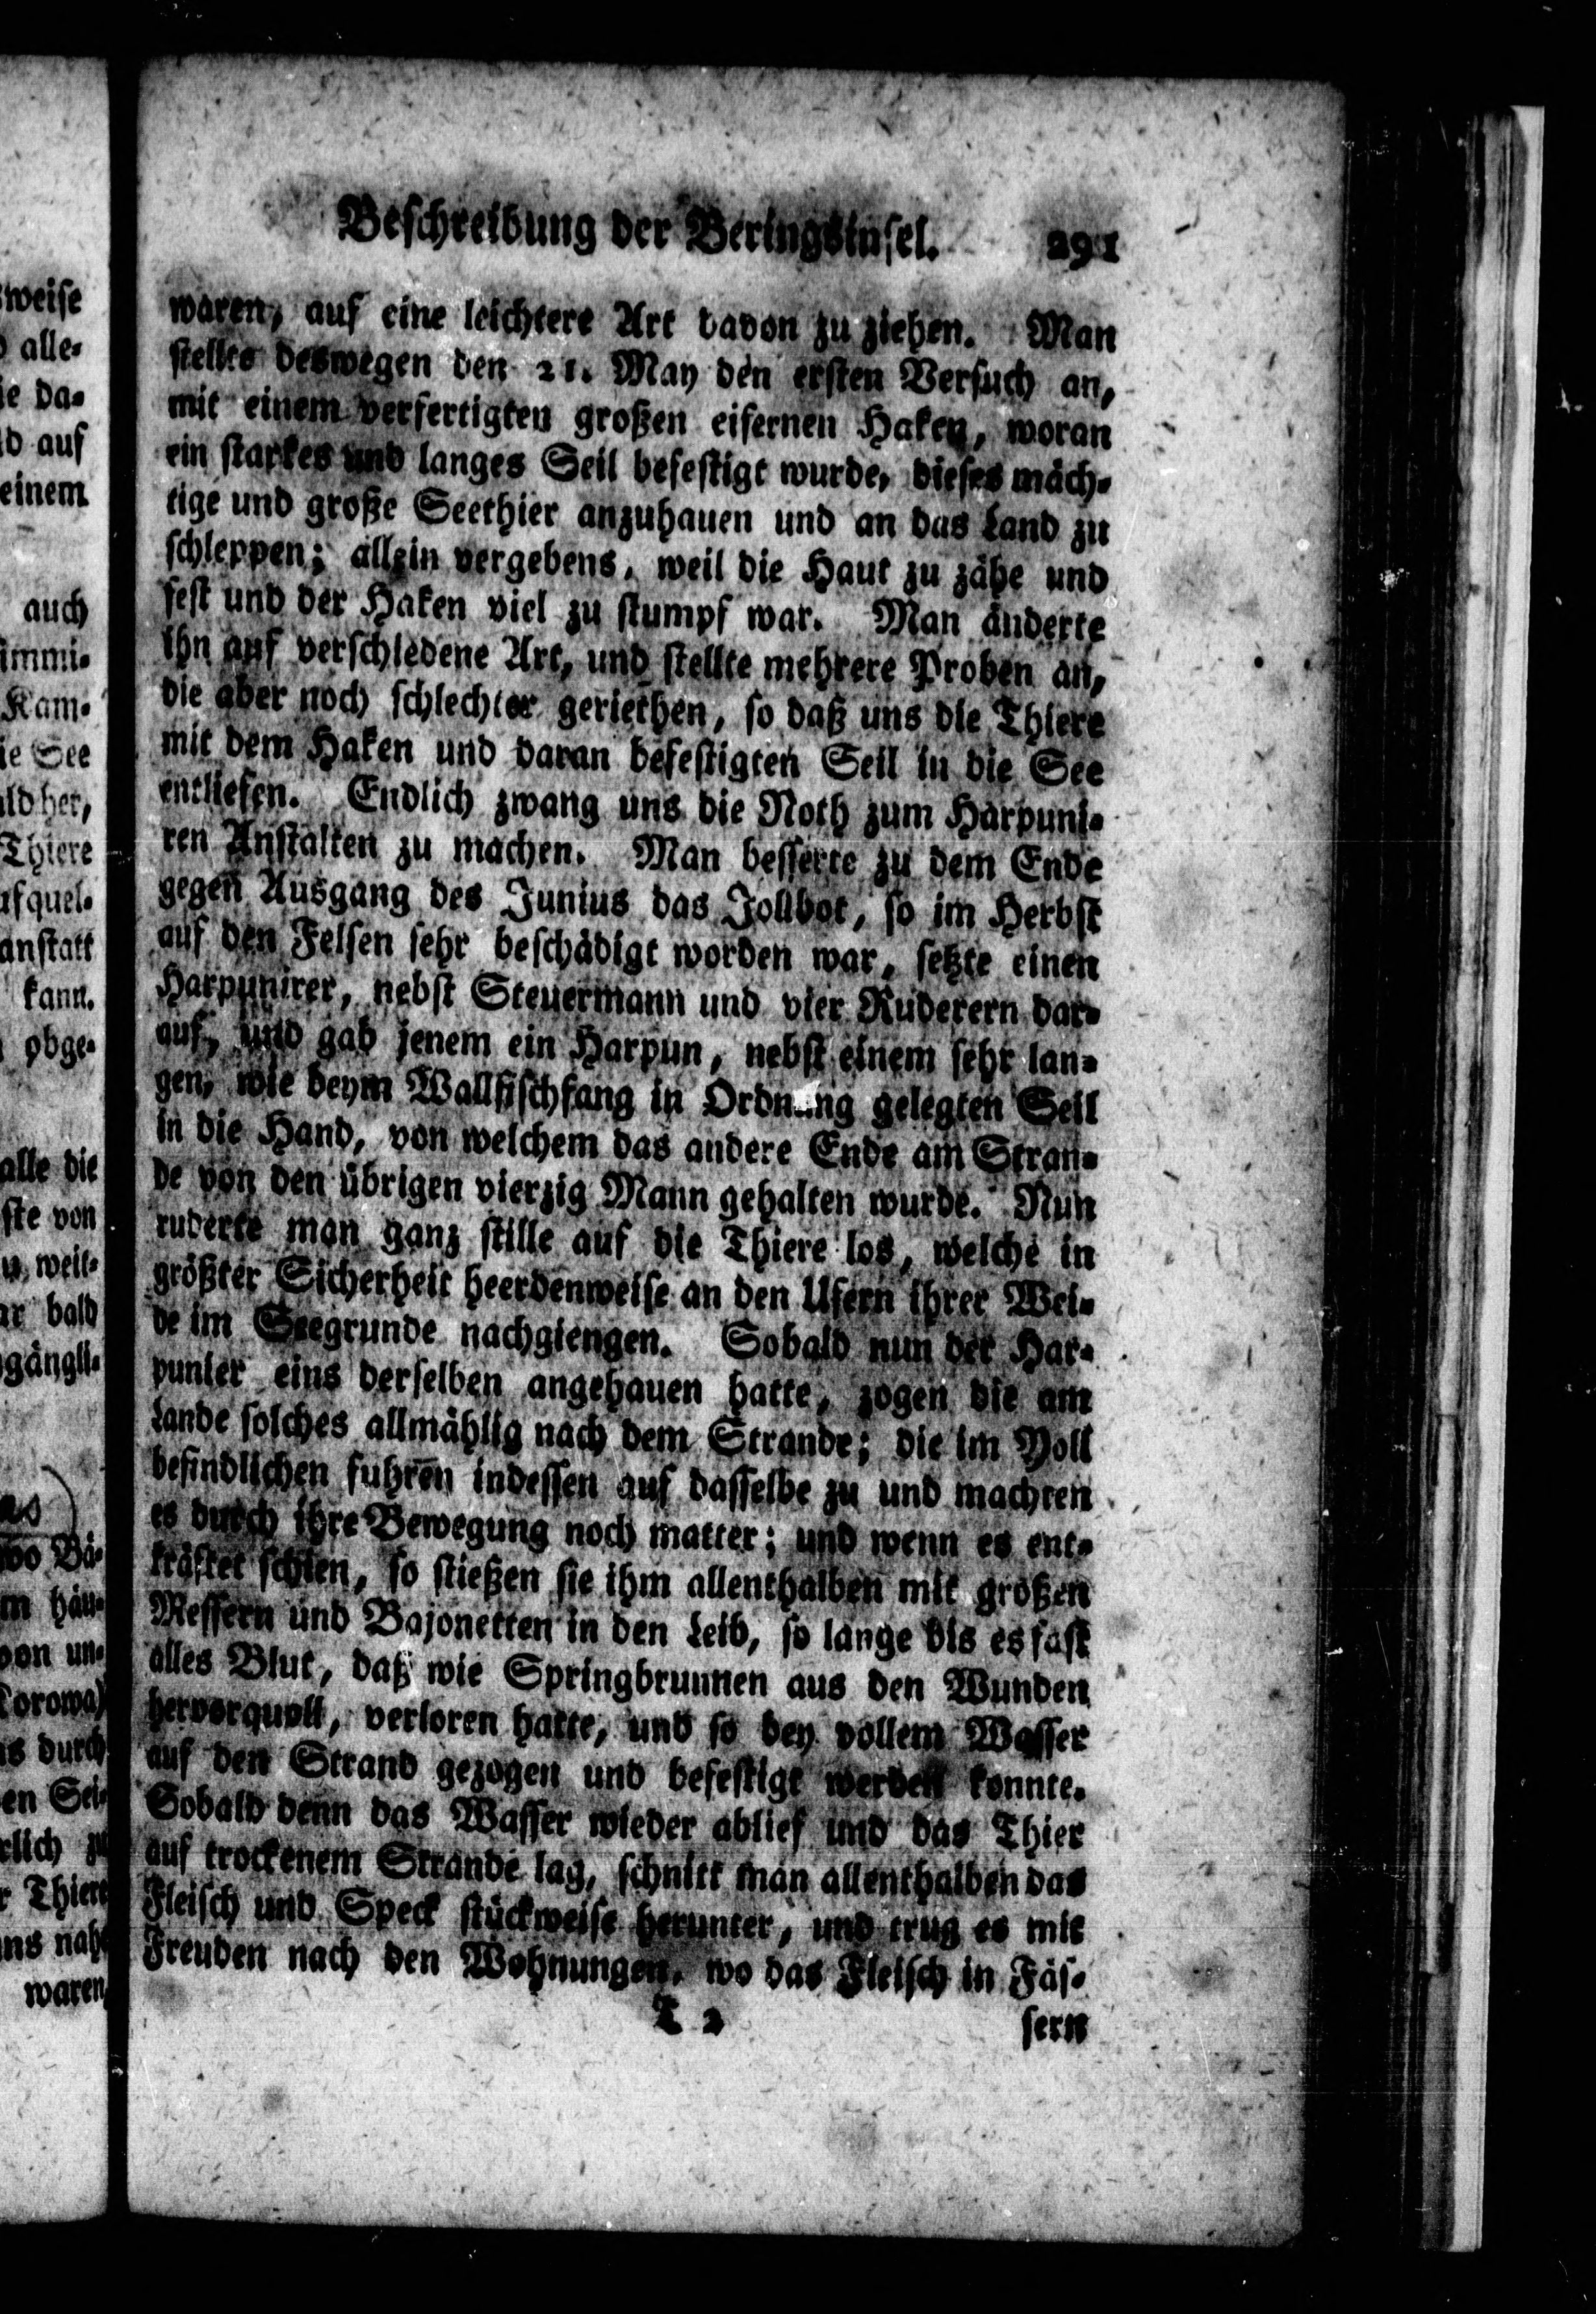 Beschreibung der Beringsinsel. 291
waren, auf eine leichtere Art davon zu ziehen. Man
stellte deswegen den 21. May den ersten Versuch an,
mit einem verfertigten großen eisernen Haken, woran
ein starkes und langes Seil befestigt wurde, dieses mäch-
tige und große Seethier anzuhauen und an das Land zu
schleppen; allein vergebens, weil die Haut zu zähe und
fest und der Haken viel zu stumpf war. Man änderte
ihn auf verschiedene Art, und stellte mehrere Proben an,
die aber noch schlechter geriethen, so daß uns die Thiere
mit dem Haken und daran befestigten Seil in die See
entliefen. Endlich zwang uns die Noth zum Harpuni-
ren Anstalten zu machen. Man besserte zu dem Ende
gegen Ausgang des Junius das Jollbot, so im Herbst
auf den Felsen sehr beschädigt worden war, setzte einen
Harpunirer, nebst Steuermann und vier Ruderern dar-
auf, und gab jenem ein Harpun, nebst einem sehr lan-
gen, wie beym Wallfischfang in Ordnung gelegten Seil
in die Hand, von welchem das andere Ende am Stran-
de von den übrigen vierzig Mann gehalten wurde. Nun
ruderte man ganz stille auf die Thiere los, welche in
größter Sicherheit heerdenweise an den Ufern ihrer Wei-
de im Seegrunde nachgiengen. Sobald nun der Har-
punier eins derselben angehauen hatte, zogen die am
Lande solches allmählig nach dem Strande; die im Yoll
befindlichen fuhren indessen auf dasselbe zu und machten
es durch ihre Bewegung noch matter; und wenn es ent-
kräftet schien, so stießen sie ihm allenthalben mit großen
Messern und Bajonetten in den Leib, so lange bis es fast
alles Blut, daß wie Springbrunnen aus den Wunden
hervorquoll, verloren hatte, und so bey vollem Wasser
auf den Strand gezogen und befestigt werden konnte.
Sobald denn das Wasser wieder ablief und das Thier
auf trockenem Strande lag, schnitt man allenthalben das
Fleisch und Speck stückweise herunter, und trug es mit
Freuden nach den Wohnungen, wo das Fleisch in Fäs-
T 2 sern
weise
alle-
da-
auf
einem
auch
immi-
Kam-
See
her,
Thiere
quel-
anstatt
kann.
obge-
alle die
von
weit-
bald
gängli-
Bä-
häu-
un-
durch
Sei-
Thiere
waren,